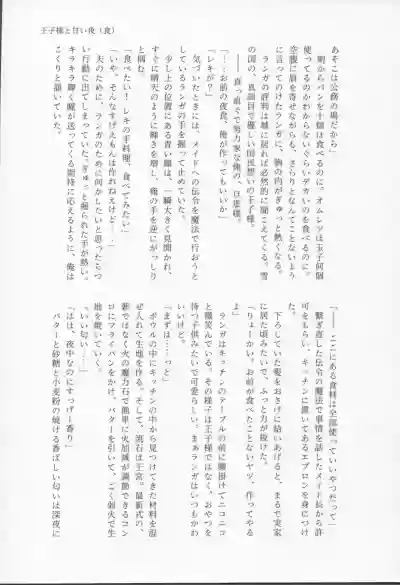 王子様と甘い夜（食）
あそこは公務の場だから」
　朝からパンを十個は食べるのに。オムレツは玉子何個
使ってるのかわからないぐらいデカいのを食べるのに。
空腹に眉を寄せながらも、さらりとなんてことないよう
に言ってのけたランガに、胸の内がぎゅっと熱くなる。
　ランガの評判は城に居れば必然的に聞こえてくる。雪
の国の、真面目で優しい国民想いの王子様。
　――真っ直ぐで努力家な俺の、旦那様。
「……お前の夜食、俺が作ってもいいか」
「レキが？」
　気づいたときには、メイドへの伝令を魔法で行おうと
しているランガの手を握って止めていた。
　少し上の位置にある青い瞳は、一瞬大きく見開かれ、
すぐに晴天のように輝きを増し、俺の手を逆にがっしり
と掴む。
「食べたい！　レキの手料理、食べてみたい」
「いや、そんなすげえもんは作れねえけど……」
　夫のために、ランガのために何かしたいと思ったらつ
い行動に出てしまっていた。ぎゅっと握られた手が熱い。
キラキラ輝く瞳が送ってくる期待に応えるように、俺は
こくりと頷いていた。
「――ここにある食料は全部使っていいやつだって」
　繋ぎ直した伝令の魔法で事情を話したメイド長から許
可をもらい、キッチンに置いてあるエプロンを身につけ
る。
　下ろしていた髪をおさげに結いあげると、まるで実家
に居た頃みたいで、ふっと力が抜けた。
「りょーかい。お前が食べたことないヤツ、作ってやる
よ」
　ランガはキッチンのテーブルの前に腰掛けてニコニコ
と微笑んでいる。その様子は王子様ではなく、おやつを
待つ子供みたいで可愛らしい。まぁランガはいつもかわ
いいけど。
「まずは……っと」
　ボウルの中にキッチンの中から見つけてきた材料を混
ぜ入れて生地を作る。そして、流石は王宮。最新式の、
薪ではなく火の魔力石で簡単に火加減が調節できるコン
ロにフライパンをかけ、バターを引いて、ごく弱火で生
地を焼いていく。
「いい匂い……」
「はは、夜中なのにすっげー香り」
　バターと砂糖と小麦粉の焼ける香ばしい匂いは深夜に